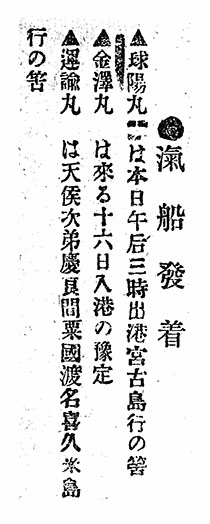 ●滊船發着
▲球陽丸は本日午后三時出港宮古島行の筈
▲金澤丸は來る十六日入港の豫定
▲運諭丸は天侯次弟慶良間粟國渡名喜久米島
行の筈